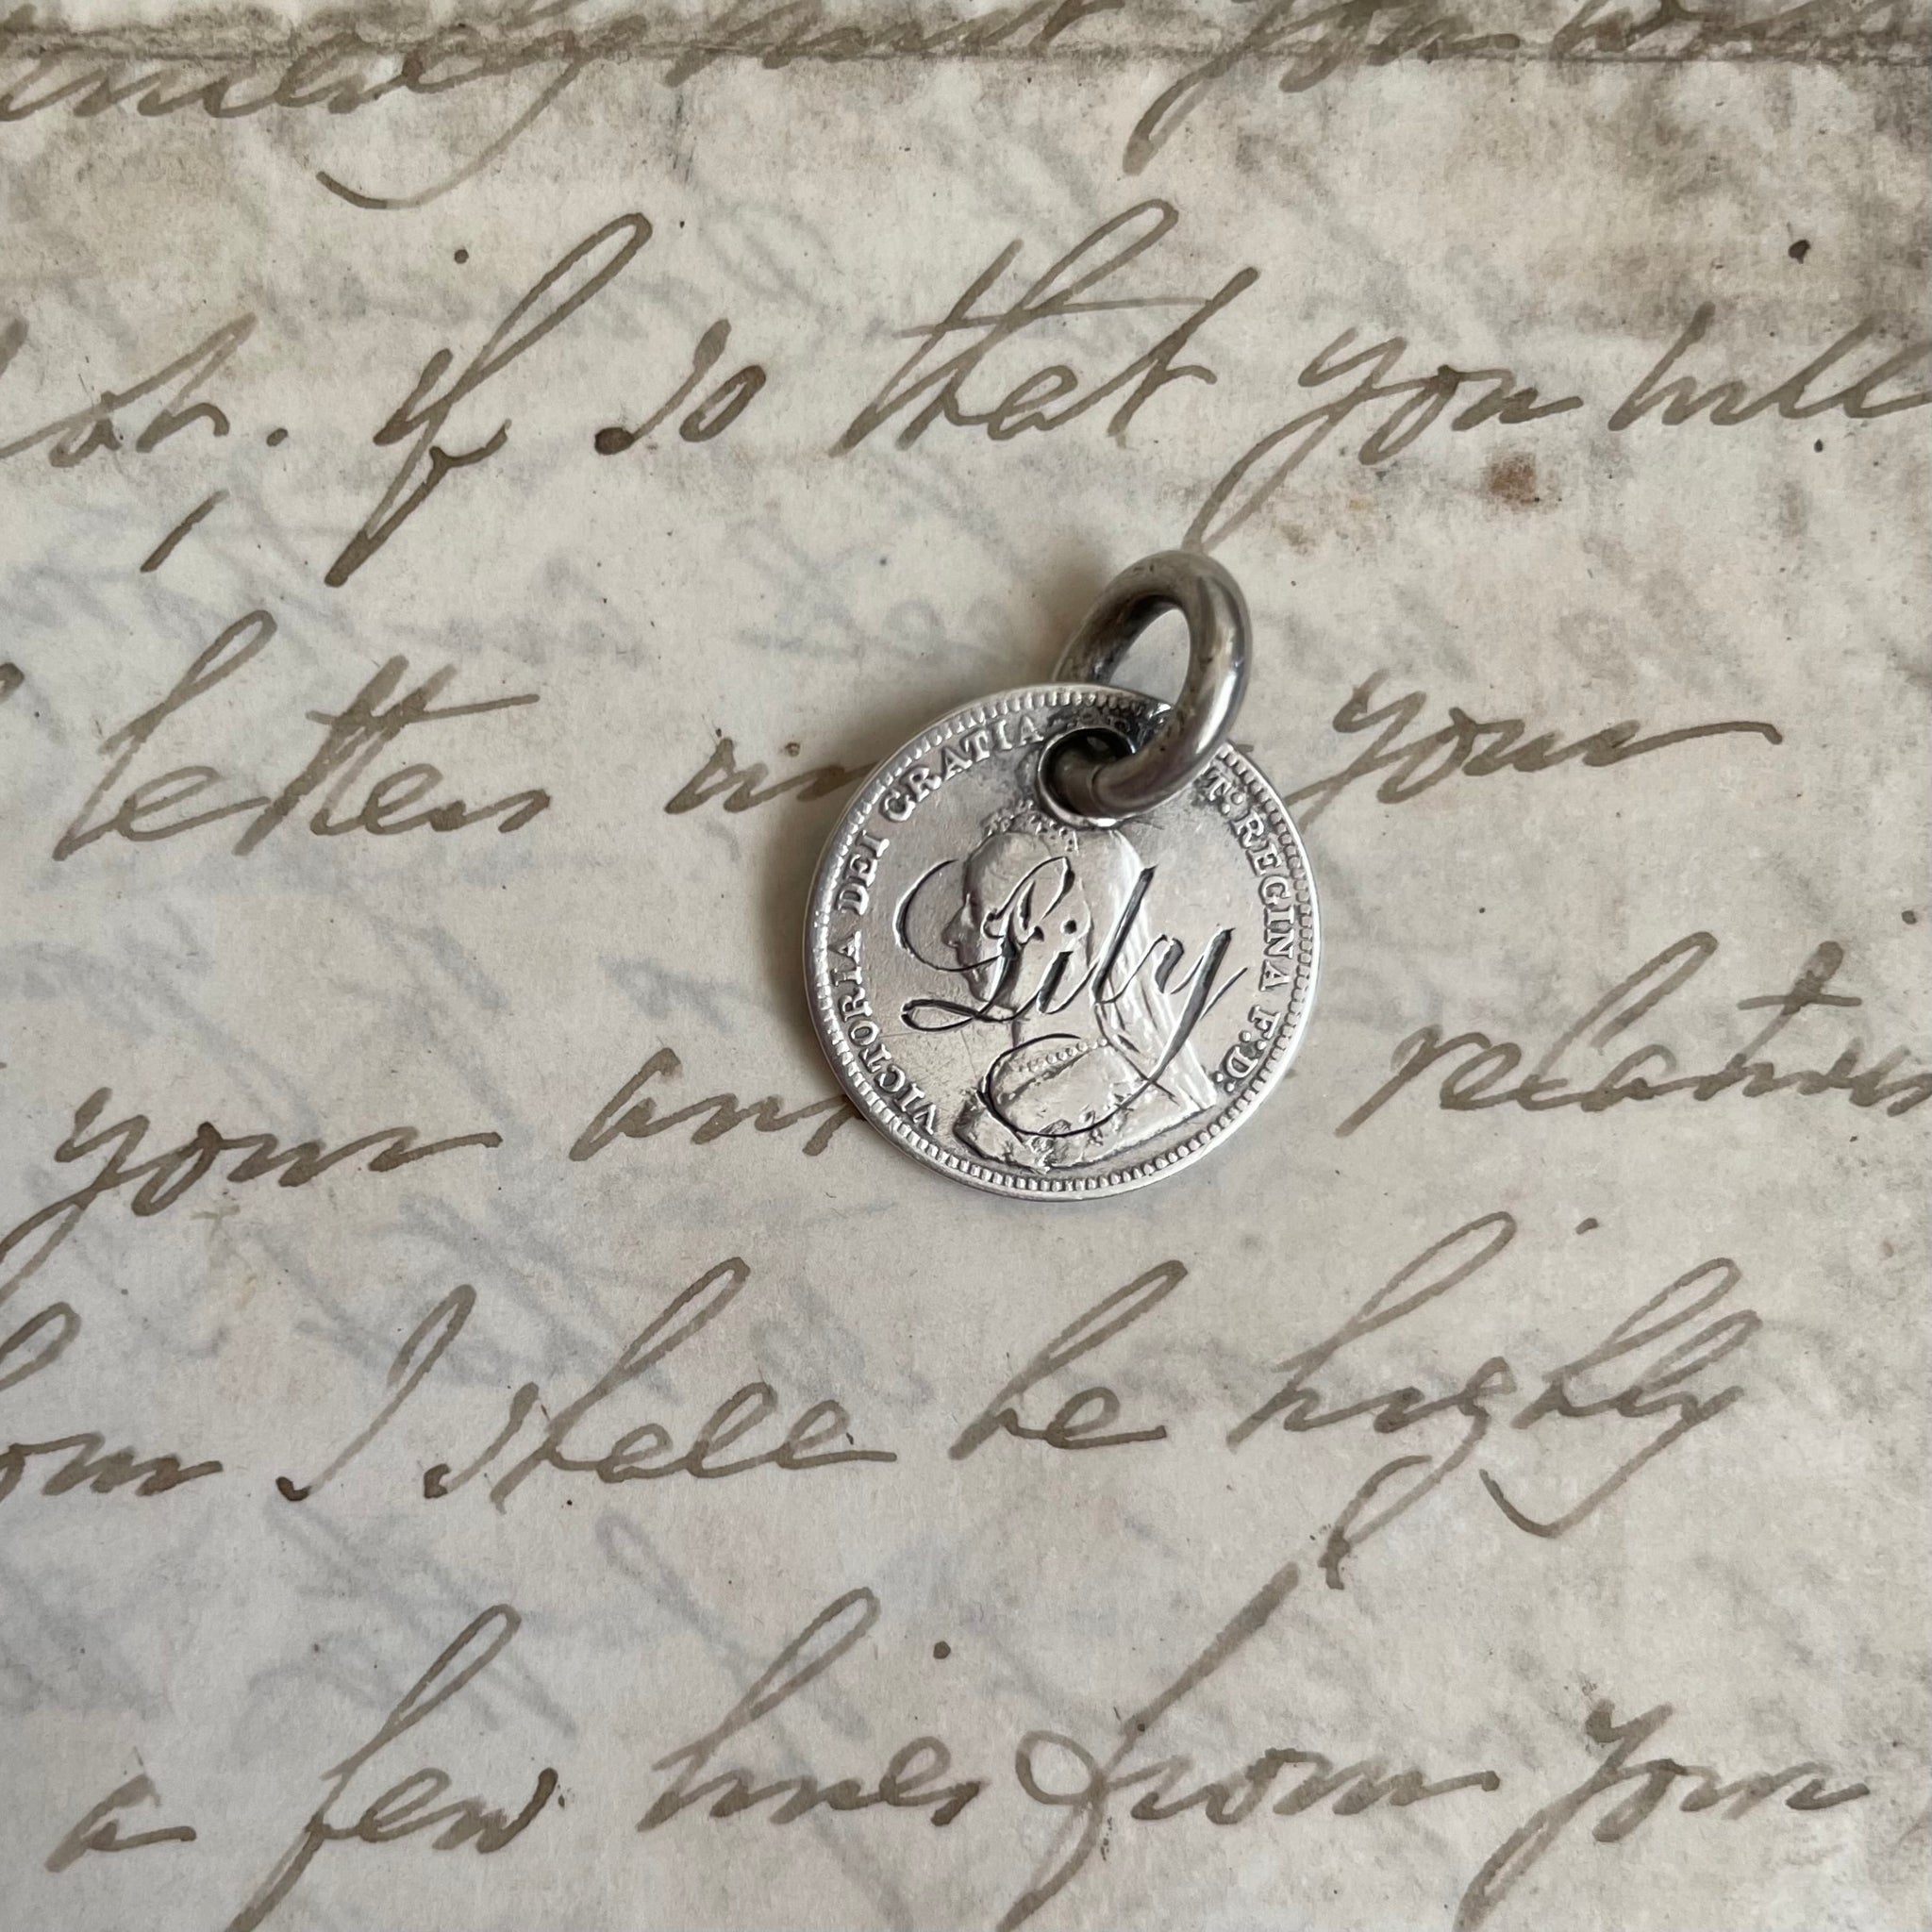 you
if so that you will
letters in your
your and relations
I shall be highly
a few lines from your
VICTORIA DEI GRATIA T: REGINA F:D:
Lily